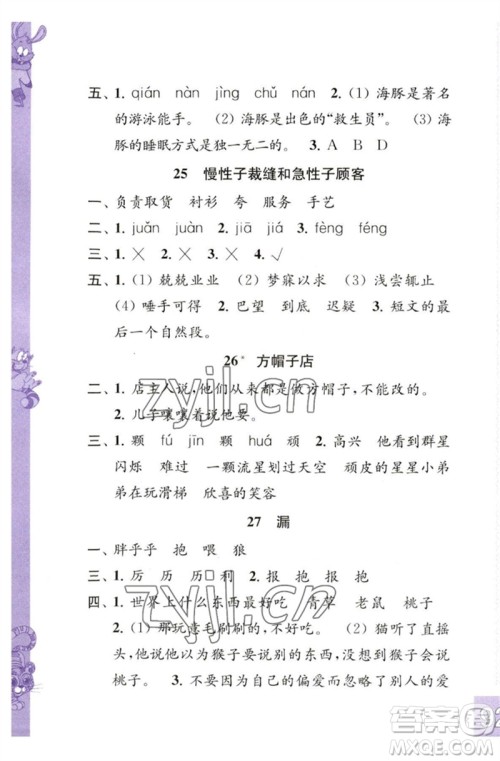 五、1. qián nàn jìng chǔ nán 2. (1) 海豚是著名
的游泳能手。 (2) 海豚是出色的“救生员”。 (3) 海
豚的睡眠方式是独一无二的。 3. A B D
25 慢性子裁缝和急性子顾客
一、负责取货 衬衫 夸 服务 手艺
二、1. juǎn juàn 2. jiā jiá 3. fèng féng
三、1. × 2. × 3. × 4. √
五、1. (1) 兢兢业业 (2) 梦寐以求 (3) 浅尝辄止
(4) 唾手可得 2. 巴望 到底 迟疑 3. 短文的最
后一个自然段。
26* 方帽子店
二、1. 店主人说,他们就做方帽子,不做别的。
2. 儿子嚷嚷着说他要。
三、1. 颗 fú jīn 颗 huá 顽 2. 高兴 他看到群星
闪烁 难过 一颗流星划过天空 顽皮的星星小弟
弟在玩滑梯 欣喜的笑容
27 漏
一、胖乎乎 抱 喂 狼
三、1. 厉 历 历 利 2. 抱 报 报 抱
四、1. 世界上什么东西最好吃 青草 老鼠 桃子
2. (1) 那玩意毛刷刷的,不好吃。 (2) 猫听了直摇
头,他认为猴子不懂得别的东西,因为猴子只会吃
桃子。 3. 不要因为自己的偏爱而忽略了别人的爱
zyjl.cn
zyjl.cn
答案